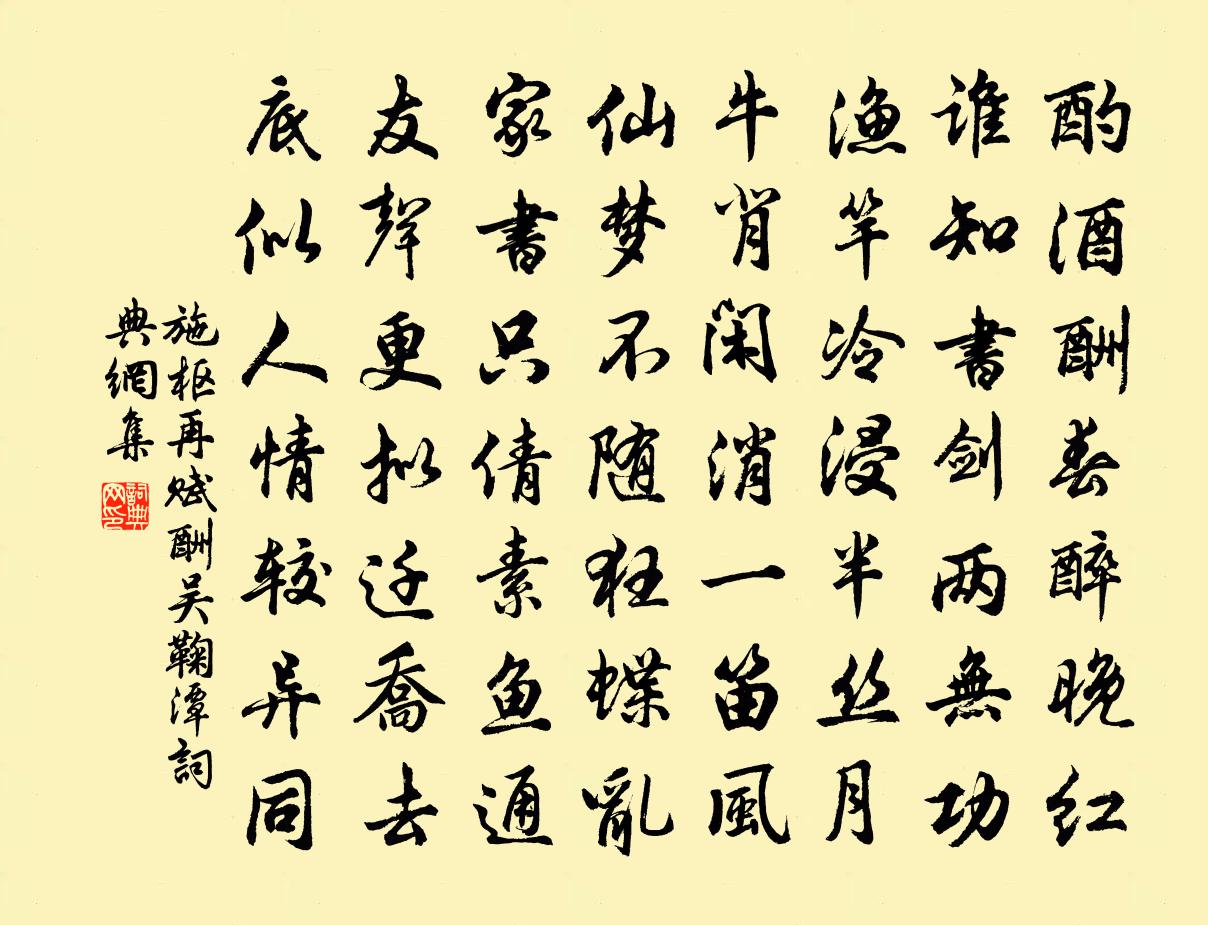 酌酒酬春醉晚红
谁知書剑两無功
渔竿冷浸半丝月
牛背闲消一笛風
仙梦不随狂蝶亂
家書只倩素鱼通
友聲更拟迁喬去
底似人情较异同
施枢再赋酬吴鞠潭詞
典網集
詞典网印